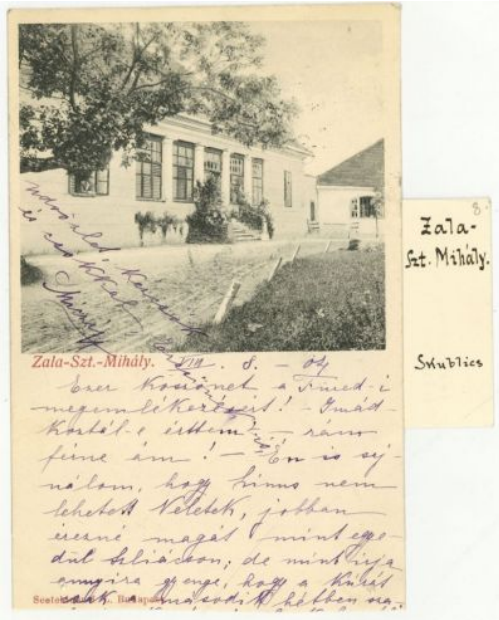 Zala-Szt.-Mihály. VIII. 8. - 04
Ezer köszönet a Füred-i
megemlékezésért! - Imád-
koztál-e érttem - rám
férne ám! - Én is saj-
nálom, hogy hinus nem
lehetett Veletek, jobban
érezné magát mint egye-
dül Szliácson; de mint írja
annyira gyenge, hogy a kúrát
csak második hétben
Budapest
8.
Zala-
Szt. Mihály.
Skublics